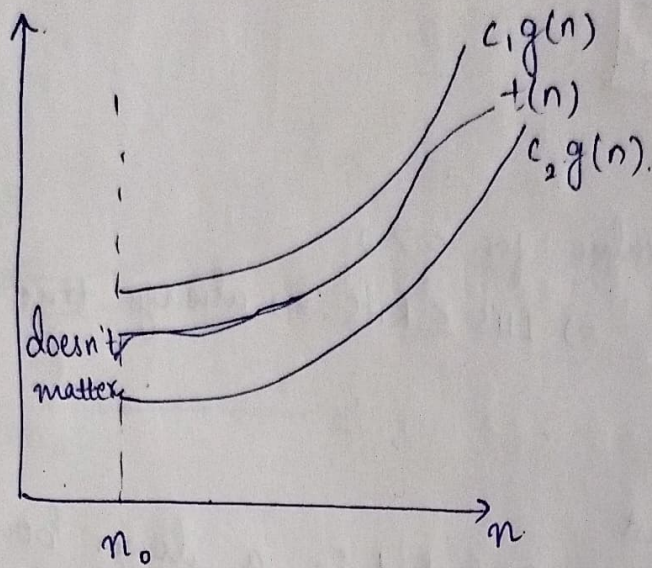 c₁g(n)
t(n)
c₂g(n).
doesn't
matter
n₀
n